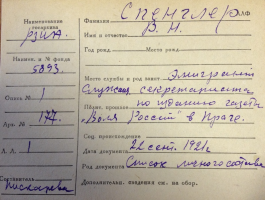 Наименование
госархива
РЗИА
Наимен. и № фонда
5893.
Опись № 1
Арх. № 177.
Л. Л. 1
Составитель
Пискарева
Фамилия СПЕНГЛЕР АЛФ
Имя и отчество В. Н.
Год рожд. Место рожд.
Место службы и род занят. Эмигрант
Служащ. секретариата
по изданию газеты
"Воля России" в Праге.
Соц. происхождение
Дата документа 22 сент. 1921 г.
Род документа Список личного состава
Дополнительн. сведения см. на обор.